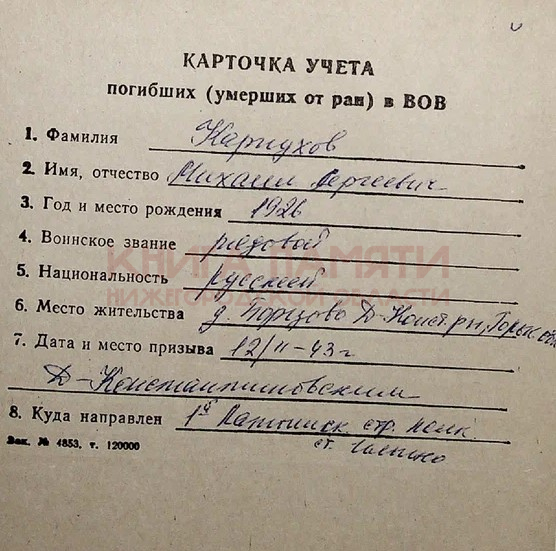 КАРТОЧКА УЧЕТА
погибших (умерших от ран) в ВОВ
1. Фамилия Карпухов
2. Имя, отчество Михаил Сергеевич
3. Год и место рождения 1926
4. Воинское звание рядовой
КНИГА ПАМЯТИ
5. Национальность русский
НИЖЕГОРОДСКОЙ ОБЛАСТИ
6. Место жительства д. Борцово Д-Конст. рн, Горьк. обл
7. Дата и место призыва 12/II-43г
Д-Константиновским
8. Куда направлен 1й стр. полк
ст.
Зак. № 4853, т. 120000